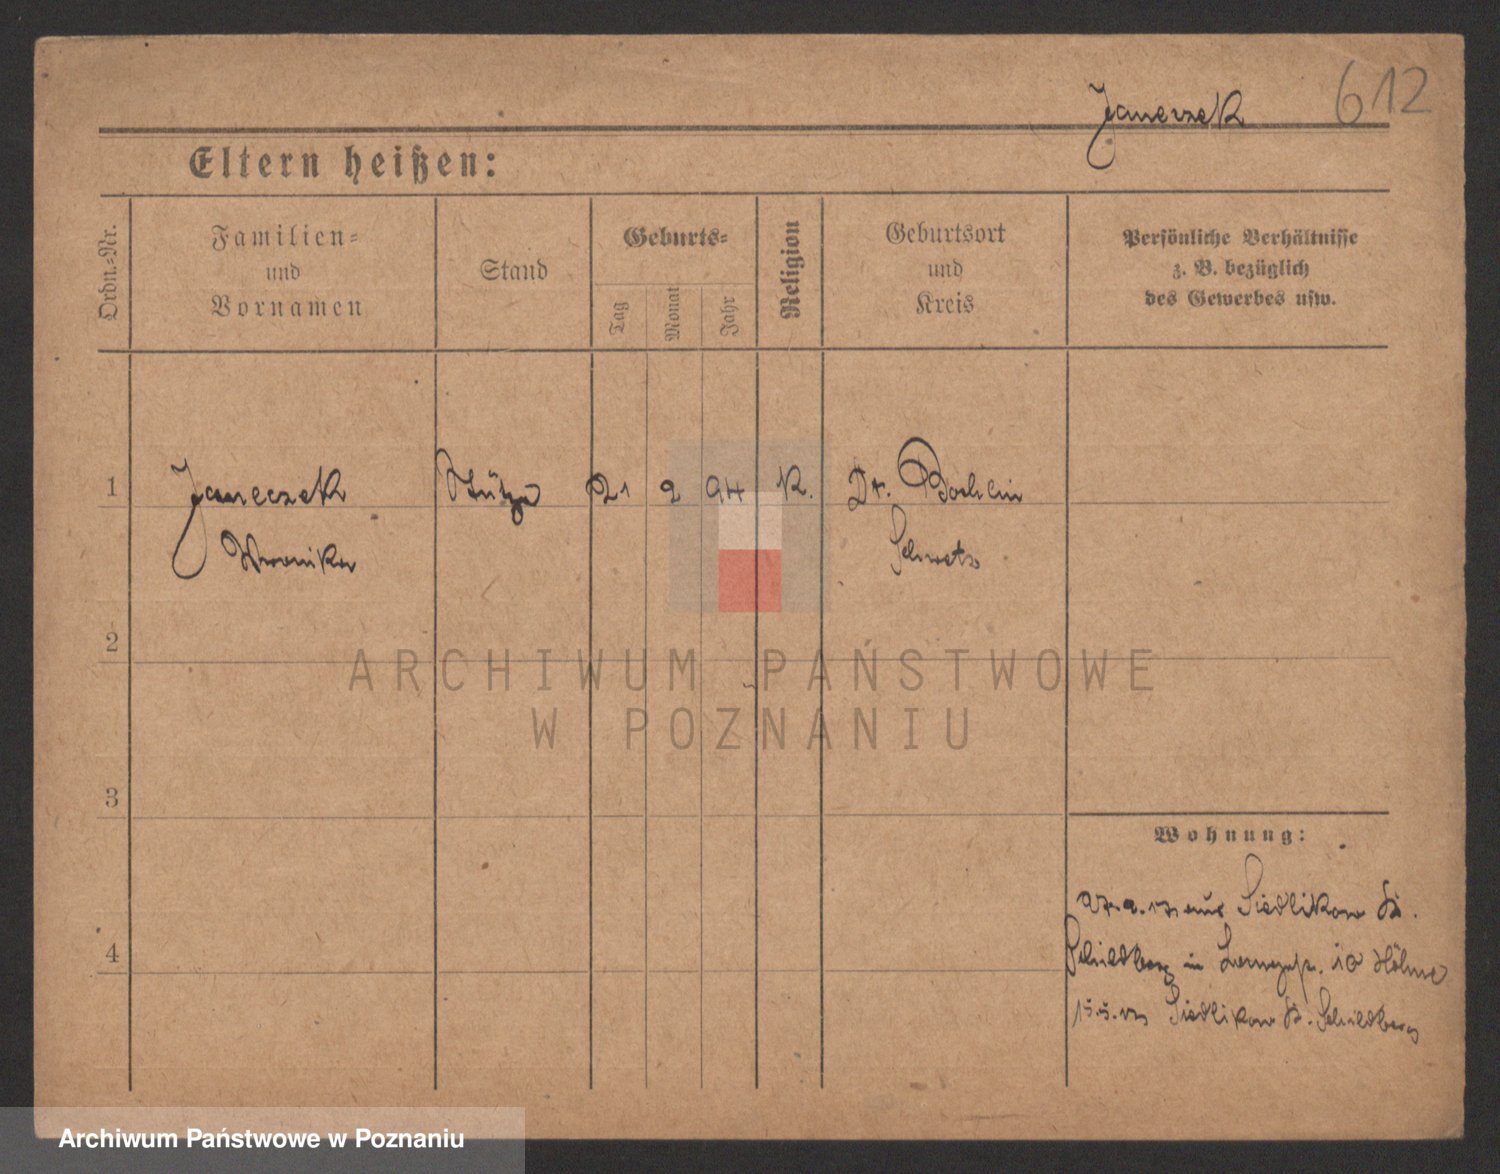 Janeczek 612
Eltern heißen:
Ordn.-Nr.
Familien-
und
Vornamen
Stand
Geburts-
Tag
Monat
Jahr
Religion
Geburtsort
und
Kreis
Persönliche Verhältnisse
z. B. bezüglich
des Gewerbes usw.
1 Janeczek Stütze 21 2 94 K. Dt.
Schwetz
2
3
4
Wohnung:
aus Siedlikow Kr.
Schildberg in 10 Höhne
Siedlikow Kr. Schildberg
ARCHIWUM PAŃSTWOWE
W POZNANIU
Archiwum Państwowe w Poznaniu